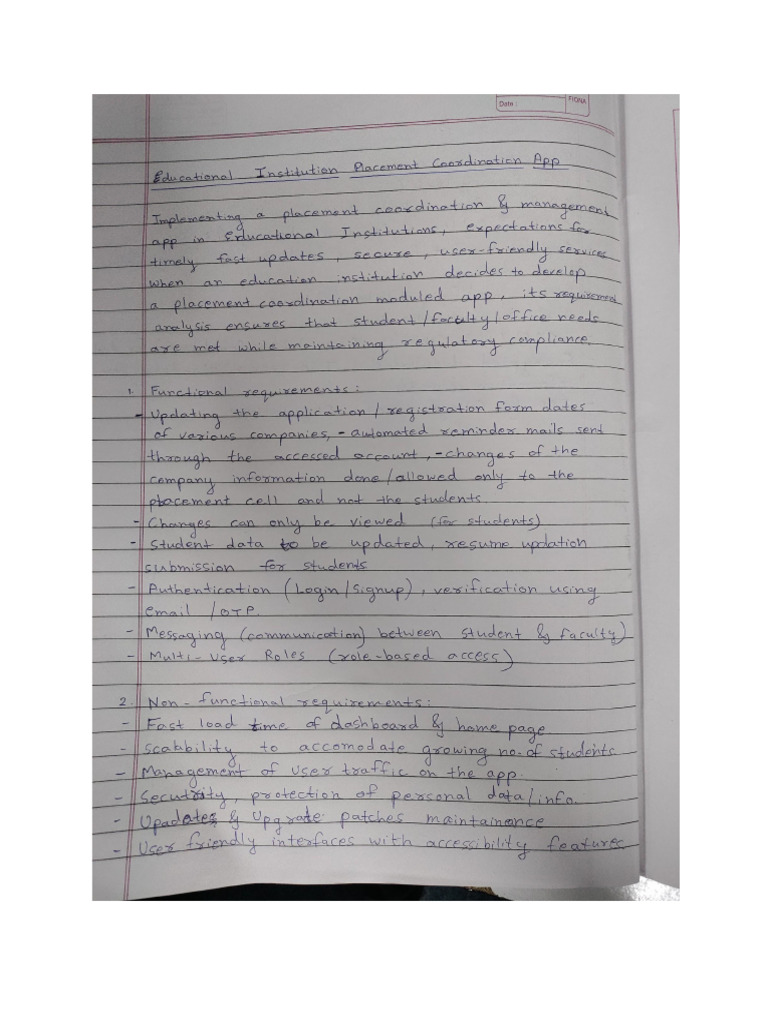 Date :
FIONA
Educational Institution Placement Coordination App
Implementing a placement coordination & management
app in Educational Institutions, expectations for
timely fast updates, secure, user-friendly services
when an education institution decides to develop
a placement coordination moduled app, its requirement
analysis ensures that student/faculty/office needs
are met while maintaining regulatory compliance.
1. Functional requirements :
- Updating the application / registration form dates
of various companies, - automated reminder mails sent
through the accessed account, - changes of the
company information done/allowed only to the
placement cell and not the students.
- Changes can only be viewed (for students)
- Student data to be updated, resume updation
submission for students
- Authentication (Login/Signup), verification using
email /OTP.
- Messaging (communication) between student & faculty)
- Multi-User Roles (role-based access)
2. Non-functional requirements :
- Fast load time of dashboard & home page
- Scability to accomodate growing no. of students
- Management of user traffic on the app.
- Security, protection of personal data/info.
- Upadates & Upgrate patches maintainance
- User friendly interfaces with accessibility features